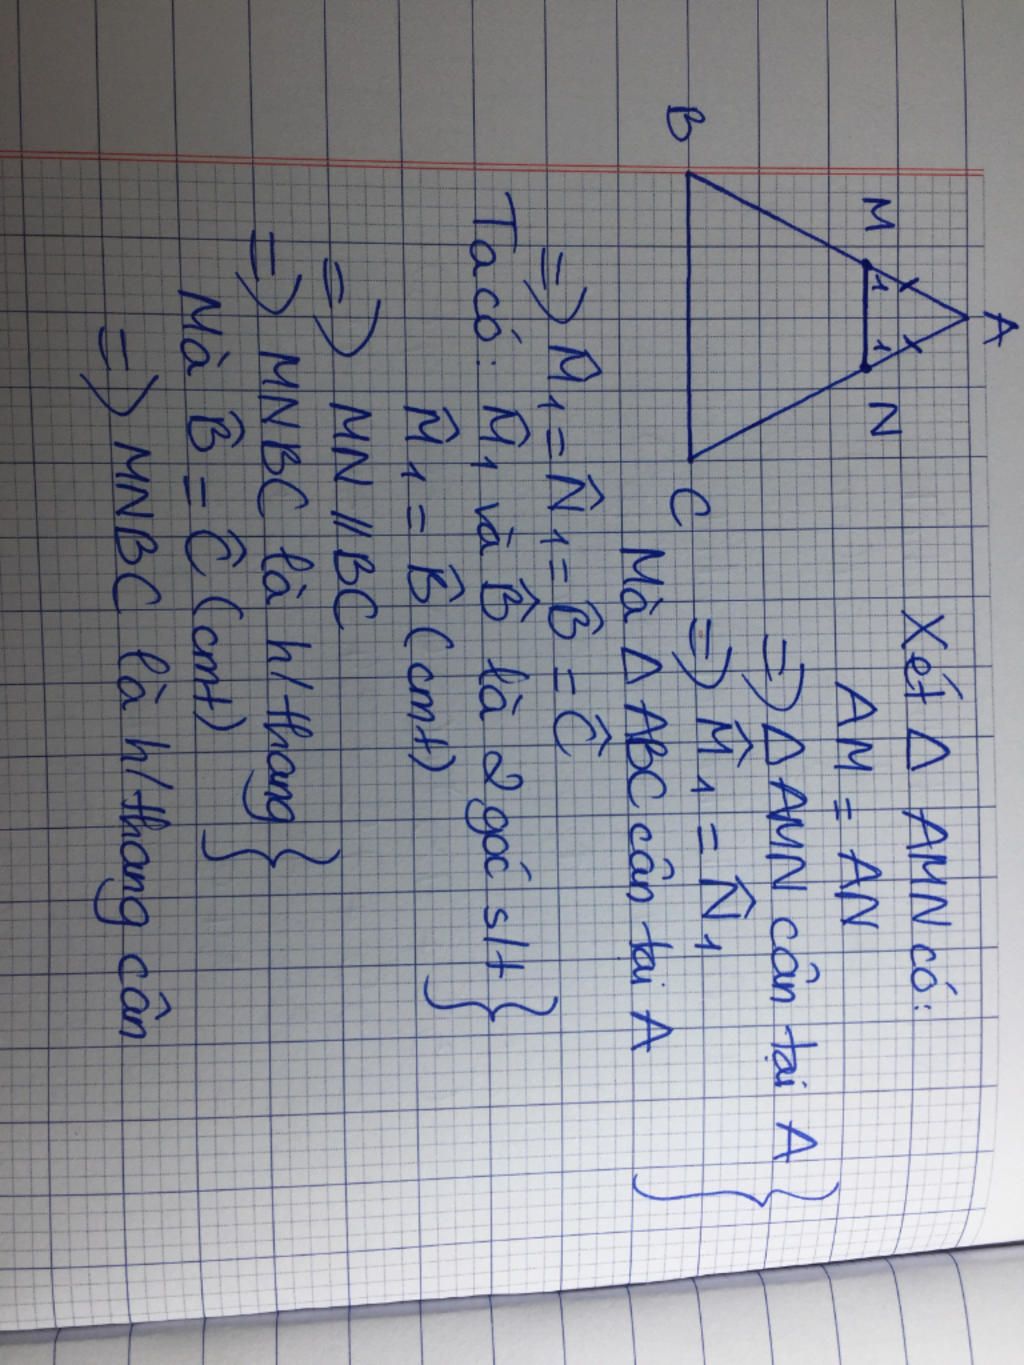 A
M
N
1
1
B
C
Xét Δ AMN có:
AM = AN
=> Δ AMN cân tại A
=> M̂1 = N̂1
Mà Δ ABC cân tại A
=> M̂1 = N̂1 = B̂ = Ĉ
Ta có: M̂1 và B̂ là 2 góc slt
M̂1 = B̂ (cmt)
=> MN // BC
=> MNBC là h/thang
Mà B̂ = Ĉ (cmt)
=> MNBC là h/thang cân